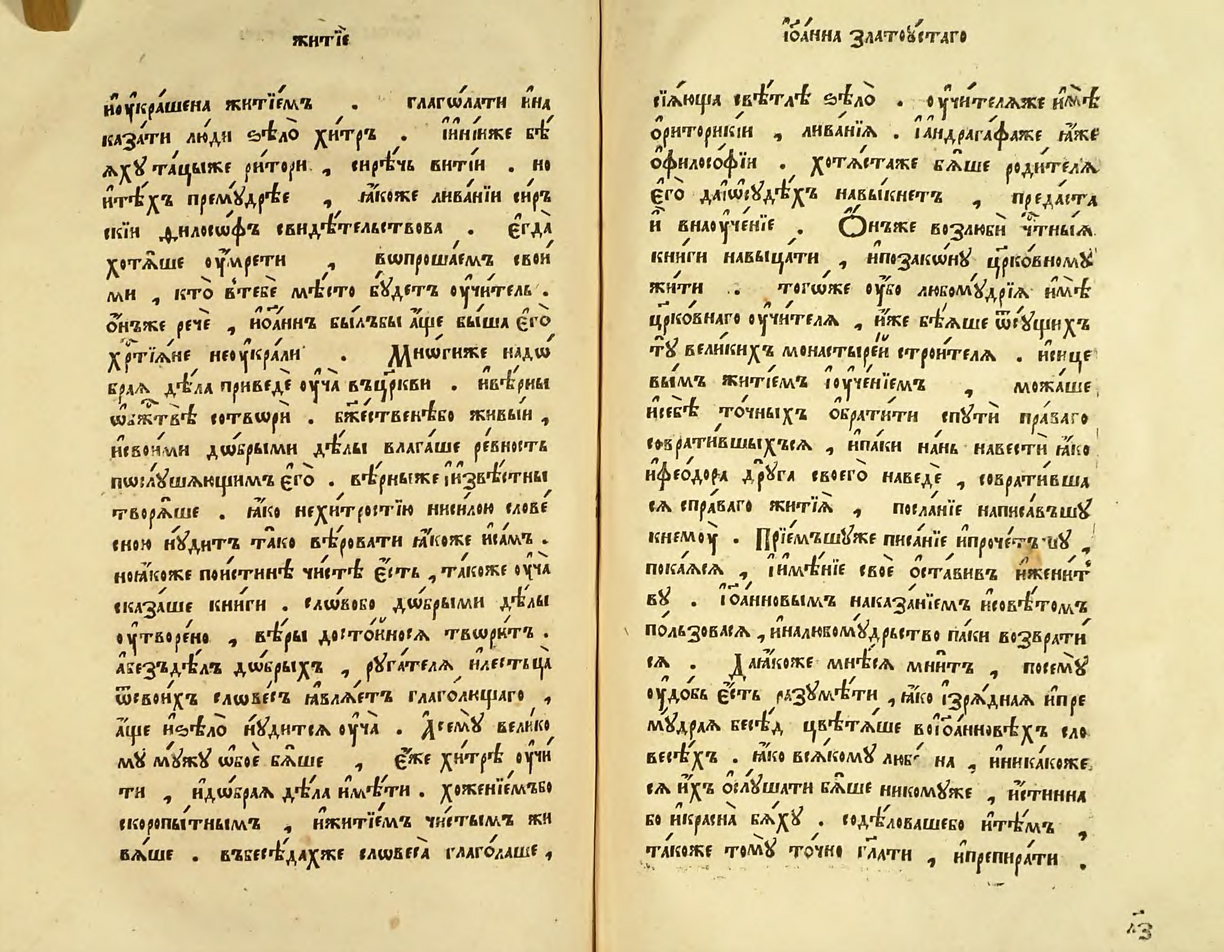 житїе
и҆оукра́шена житїе́мъ . глаго́лати и҆на
каза́ти лю́ди ѕѣло̀ хи́тръ . и҆ні́иже бѣ̀
ѧхꙋ та́цыже ри́тори , си́рѣчь вити́и . но
и҆тѣ́хъ премꙋ́дрѣе , ꙗ҆́коже лива́нїи си́рь
скїи фило́соѳъ свидѣ́тельствова . є҆гда̀
хотѧ́ше оу҆мре́ти , вопроша́емъ свои́
ми , кто̀ втебѐ мѣ́сто бꙋ́детъ оу҆чи́тель .
ѻ҆́нъже речѐ , и҆ѡа́ннъ бы́лъбы а҆́ще бы́ша є҆го̀
хр҇тїѧ́не неоукра́ли . Мно́гиже надѡ́
браѧ дѣ́ла приведѐ оу҆ча̀ въцр҃кви . и҆вѣ́рны
ѡ҆бж҃твѣ̀ сотворѝ . бж҃е́ственѣбо живы́й ,
и҆свои́ми дѡ́брыми дѣ́лы влага́ше ре́вность
послꙋ́шающимъ є҆го̀ . вѣ́рныже и҆извѣ́стны
творѧ́ше . ꙗ҆́ко нехи́тростїю ниси́лою слове́
сною нꙋ́дитъ та́ко вѣ́ровати ꙗ҆́коже и҆са́мъ .
ноꙗ҆́коже пои́стинѣ чи́стѣ є҆́сть , та́коже оу҆ча̀
сказа́ше кни́ги . сло́вобо дѡ́брыми дѣ́лы
оу҆творе́но , вѣ́ры досто́йносѧ твори́тъ .
а҆безъдѣ́лъ дѡ́брыхъ , рꙋга́телѧ и҆льстьца̀
ѿсвои́хъ слове́съ ꙗ҆влѧ́етъ глаго́лющаго ,
а҆́ще и҆ѕѣло̀ нꙋ́дитсѧ оу҆ча̀ . А҆семꙋ̀ вели́ко
мꙋ мꙋ́жꙋ ѻ҆боѐ бѧ́ше , є҆́же хи́трѣ оу҆чи́
ти , и҆дѡ́браѧ дѣ́ла и҆мѣ́ти . хожде́нїемъбо
скоропы́тнымъ , и҆житїе́мъ чи́стымъ жи
вѧ́ше . въбесѣ́дахже словеса̀ глаго́лаше ,
і҆ѡа́нна златоꙋ́стаго
сїѧ́юща свѣ́тлѣ ѕѣло̀ . оу҆чи́телѧже и҆мѣ̀
ѻ҆ритори́кїи , лива́нїѧ . і҆андрага́фаже ꙗ҆́же
ѻ҆филосо́фїи . хотѧ́стаже бѧ́ше роди́телѧ
є҆го̀ даи҆ѡ҆сꙋдѣ́хъ навы́кнетъ , преда́ста
и҆̀ внаоуче́нїе . Ѻ҆́нъже возлюбѝ ч҇тны́ѧ
кни́ги навыца́ти , и҆позако́нꙋ цр҃ко́вномꙋ
жи́ти . тогѡ́же оу҆́бо любомꙋ́дрїѧ и҆мѣ̀
цр҃ко́внаго оу҆чи́телѧ , и҆́же бѣѧ́ше ѿсꙋ́щихъ
тꙋ̀ вели́кихъ монастыре́й строи́телѧ . и҆сице
вы́мъ житїе́мъ і҆оуче́нїемъ , можа́ше
и҆себѣ̀ то́чныхъ ѻ҆брати́ти спꙋтѝ пра́ваго
соврати́вшыхъсѧ , и҆па́ки на́нь навестѝ ꙗ҆́ко
и҆ѳео́дора дрꙋ́га своего̀ наведѐ , соврати́вша
сѧ спра́ваго житїѧ̀ , посла́нїе написа́въшꙋ
кнемꙋ̀ . Прїе́мъшꙋже писа́нїе и҆проче́тъшꙋ ,
пока́ѧсѧ , і҆и҆мѣ́нїе своѐ ѻ҆ста́вивъ и҆жени́т
вꙋ . і҆ѡа́нновымъ наказа́нїемъ и҆совѣ́томъ
по́льзовасѧ , и҆налюбомꙋ́дрьство па́ки возврати́
сѧ . Да꙽ꙗ҆́коже мнѣ́сѧ мни́тъ , посемꙋ̀
оу҆до́бь є҆́сть разꙋмѣ́ти , ꙗ҆́ко і҆зрѧ́днаѧ и҆пре
мꙋ́драѧ бесѣ́д цвѣтѧ́ше воі҆ѡа́нновѣхъ сло
весѣ́хъ . ꙗ҆́ко всѧ́комꙋ на , и҆ника́коже
сѧ и҆́хъ ѻ҆слꙋ́шати бѧ́ше никомꙋ́же , и҆́стинна
бо и҆красна̀ бѧ́хꙋ . содѣ́ловашебо и҆тѣ́мъ ,
та́коже томꙋ̀ то́чно гл҃ати , и҆препира́ти .
л҃з